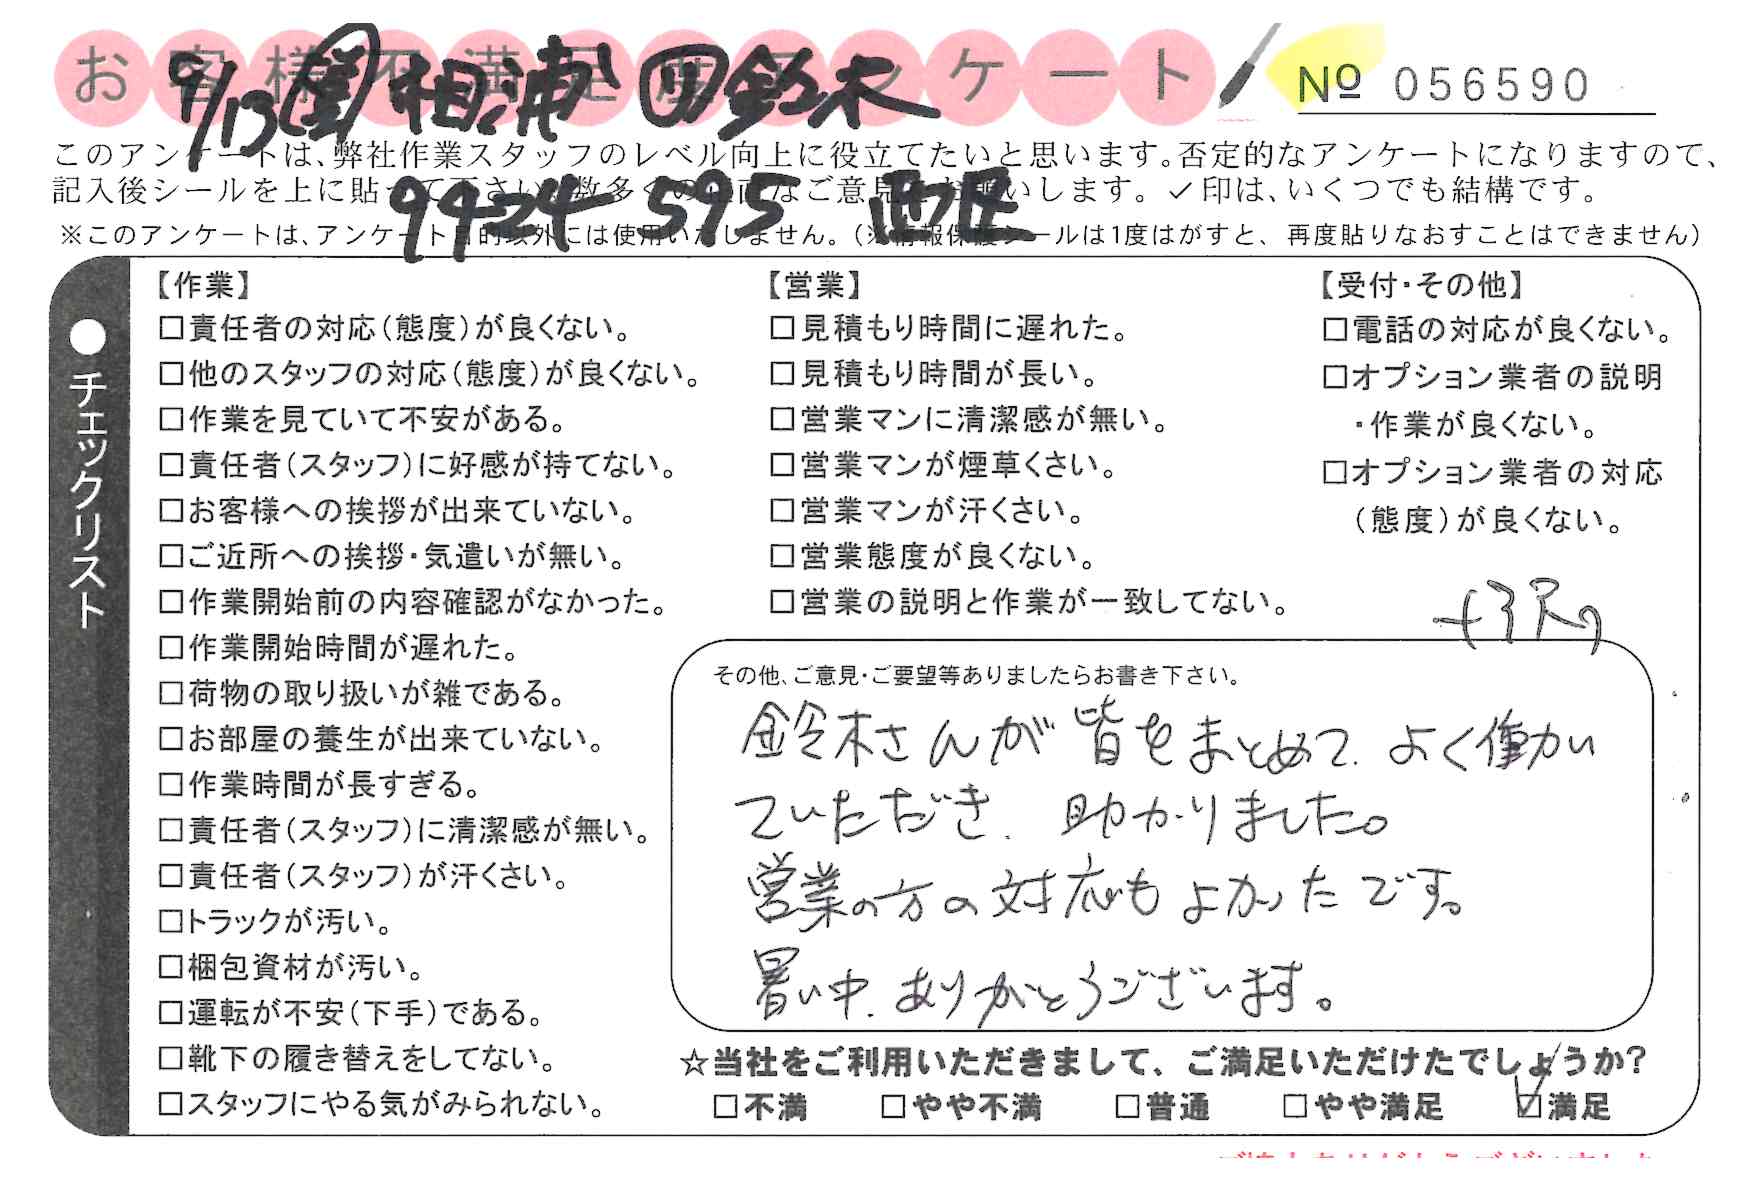 お客様不満足度アンケート
№ 056590
9/13 相浦 鈴木
このアンケートは、弊社作業スタッフのレベル向上に役立てたいと思います。否定的なアンケートになりますので、
記入後シールを上に貼って下さい。数多くの正直なご意見をお願いします。✓印は、いくつでも結構です。
595
※このアンケートは、アンケート目的以外には使用いたしません。(※情報保護シールは1度はがすと、再度貼りなおすことはできません)
●チェックリスト
【作業】
□責任者の対応(態度)が良くない。
□他のスタッフの対応(態度)が良くない。
□作業を見ていて不安がある。
□責任者(スタッフ)に好感が持てない。
□お客様への挨拶が出来ていない。
□ご近所への挨拶・気遣いが無い。
□作業開始前の内容確認がなかった。
□作業開始時間が遅れた。
□荷物の取り扱いが雑である。
□お部屋の養生が出来ていない。
□作業時間が長すぎる。
□責任者(スタッフ)に清潔感が無い。
□責任者(スタッフ)が汗くさい。
□トラックが汚い。
□梱包資材が汚い。
□運転が不安(下手)である。
□靴下の履き替えをしてない。
□スタッフにやる気がみられない。
【営業】
□見積もり時間に遅れた。
□見積もり時間が長い。
□営業マンに清潔感が無い。
□営業マンが煙草くさい。
□営業マンが汗くさい。
□営業態度が良くない。
□営業の説明と作業が一致してない。
【受付・その他】
□電話の対応が良くない。
□オプション業者の説明
・作業が良くない。
□オプション業者の対応
(態度)が良くない。
その他、ご意見・ご要望等ありましたらお書き下さい。
鈴木さんが皆をまとめて、よく働い
ていただき、助かりました。
営業の方の対応もよかったです。
暑い中、ありがとうございます。
☆当社をご利用いただきまして、ご満足いただけたでしょうか?
□不満 □やや不満 □普通 □やや満足 ☑満足